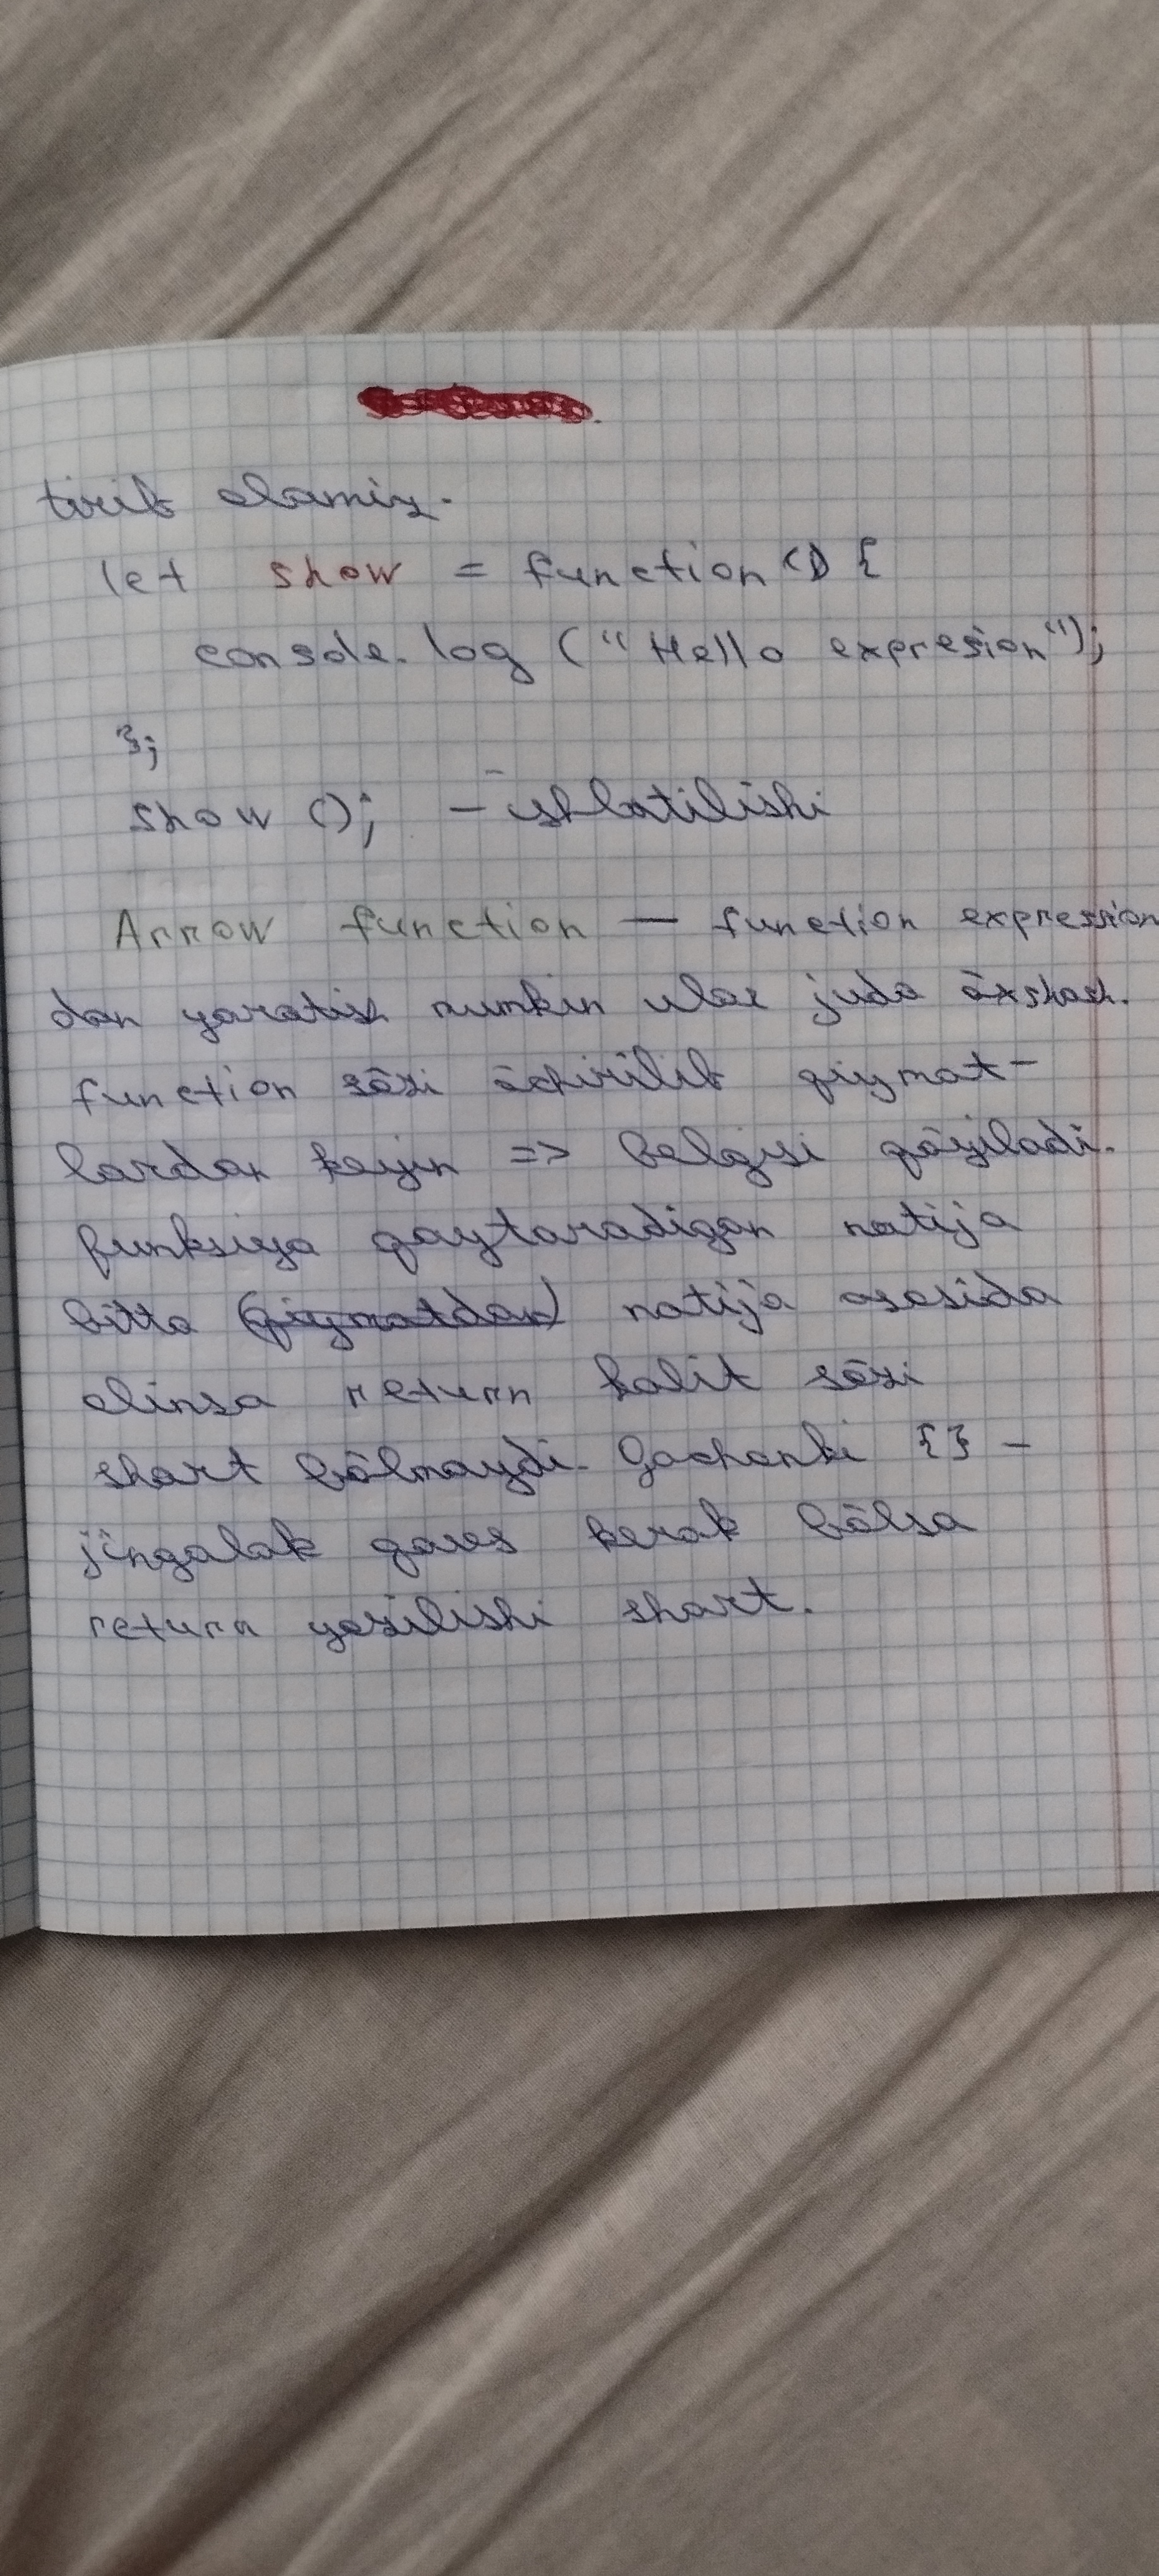 tirib olamiz.
let show = function () {
console.log ("Hello expresion");
};
show (); - ishlatilishi
Arrow function — function expression
dan yaratish mumkin ular juda ōxshash.
function sōzi ōchirilib qiymat-
lardan keyin => belgisi qōyiladi.
funksiya qaytaradigan natija
bitta (qiymatdan) natija asosida
olinsa return kalit sōzi
shart bōlmaydi. Qachonki {} -
jingalak qavs kerak bōlsa
return yozilishi shart.